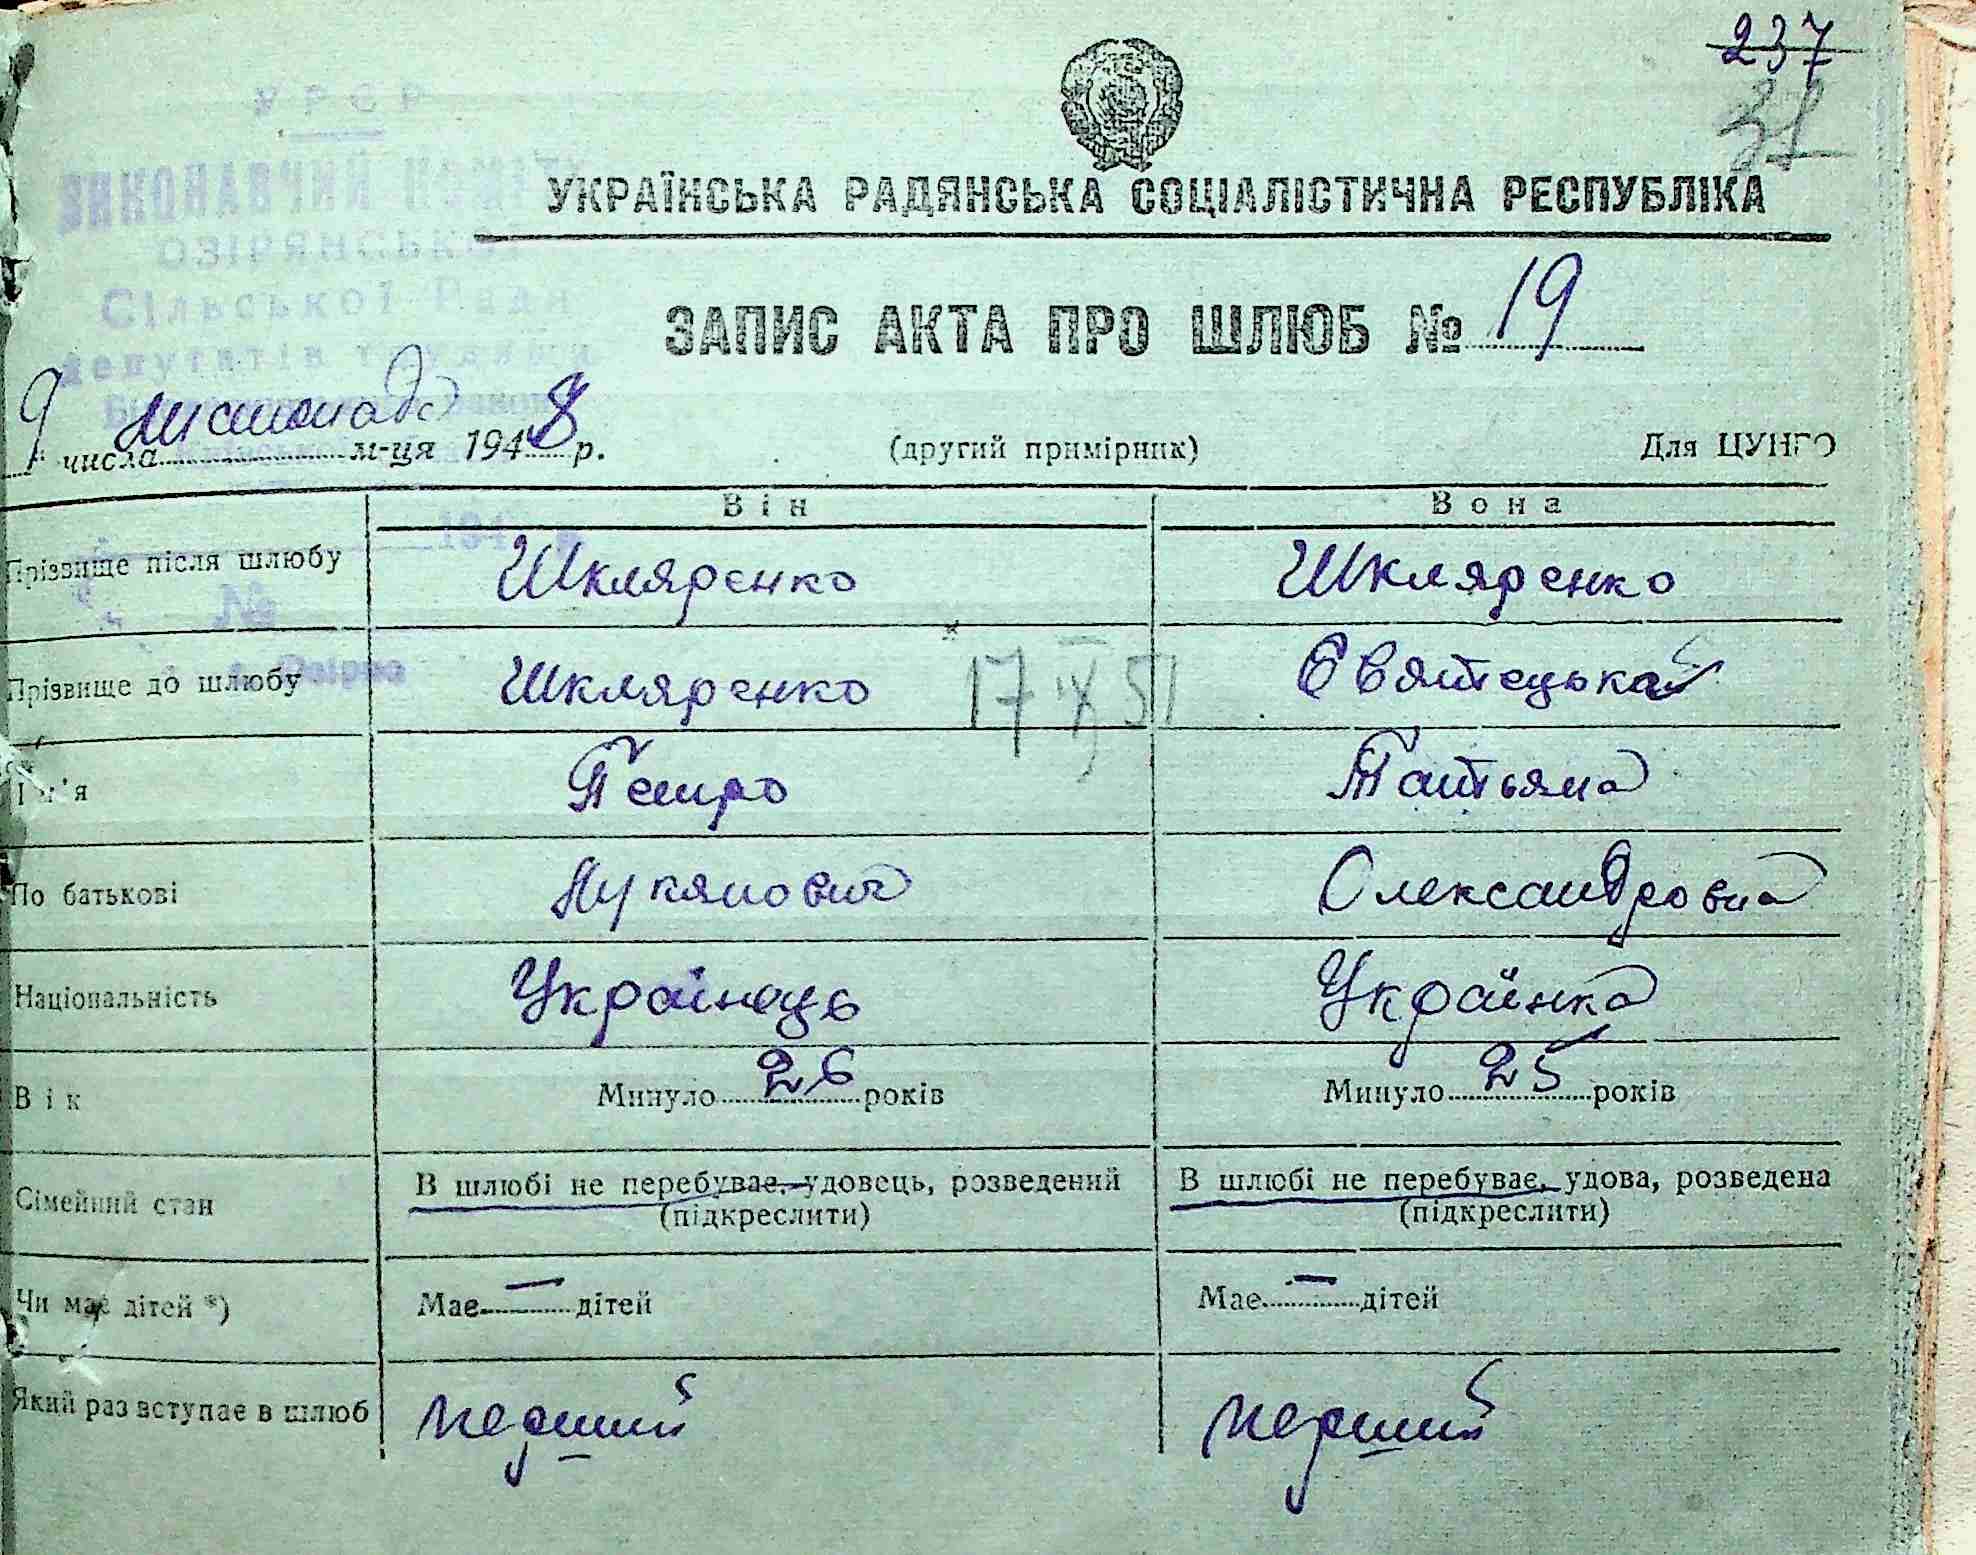 237
УРСР
ВИКОНАВЧИЙ КОМІТЕТ
ОЗІРЯНСЬКОЇ
Сільської Ради
депутатів трудящих
УКРАЇНСЬКА РАДЯНСЬКА СОЦІАЛІСТИЧНА РЕСПУБЛІКА
ЗАПИС АКТА ПРО ШЛЮБ № 19
9 числа листопада м-ця 1948 р. (другий примірник) Для ЦУНГО
Він Вона
194
Прізвище після шлюбу Шкляренко Шкляренко
№
Прізвище до шлюбу Шкляренко Святецька
17 IX 51
Ім'я Петро Татьяна
По батькові Лукянович Олександровна
Національність Українець Українка
Вік Минуло 26 років Минуло 25 років
Сімейний стан В шлюбі не перебуває, удовець, розведений В шлюбі не перебуває, удова, розведена
(підкреслити) (підкреслити)
Чи має дітей *) Має — дітей Має — дітей
Який раз вступає в шлюб перший перший